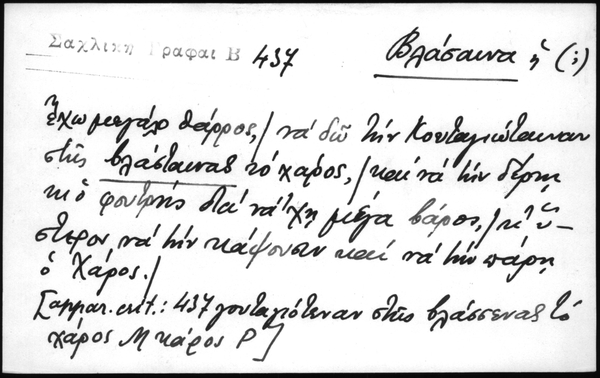 Σαχλίκη Γραφαί Β 437
Βλάσαινα ἡ (;)
Ἔχω μεγάλο θάρρος, / νά δῶ τήν Κουταγιώταιναν
στῆς βλάσταινας τό χάρος, / καί νά τήν δέρνη
κι ὁ φουρνής διά νά 'χη μέγα βάρος, / κ' ὕ-
στερον νά τήν κάψουσιν καί νά τήν πάρη
ὁ Χάρος. /
[appar. crit.: 437 γουταγιότεναν στῆς βλάσσενας τό
χάρος M κάρος P]